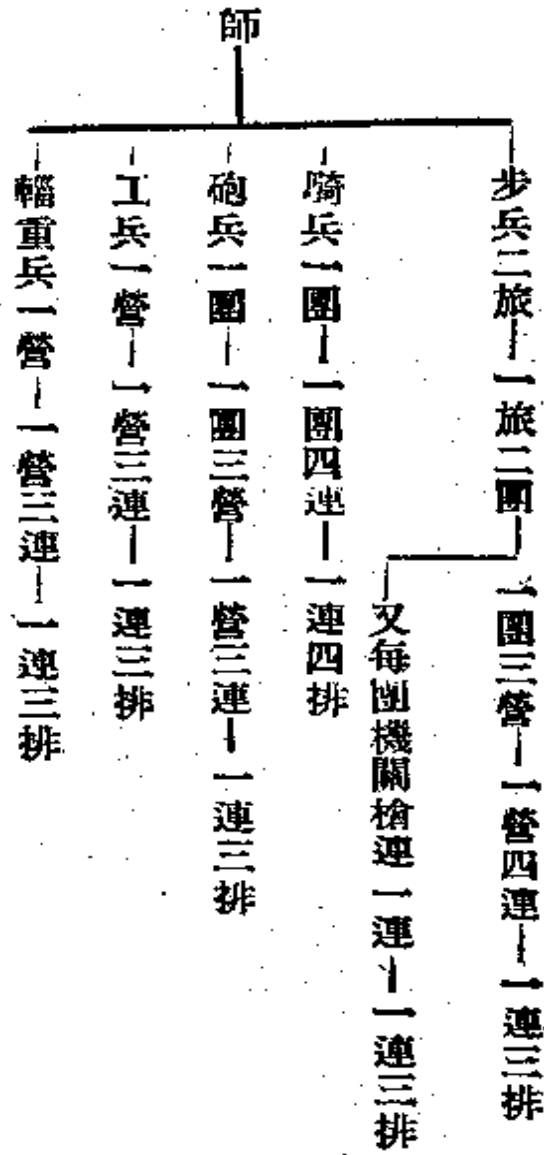 師
步兵二旅—一旅二團—一團三營—一營四連—一連三排
又每團機關槍連一連—一連三排
騎兵一團—一團四連—一連四排
砲兵一團—一團三營—一營三連—一連三排
工兵一營—一營三連—一連三排
輜重兵一營—一營三連—一連三排